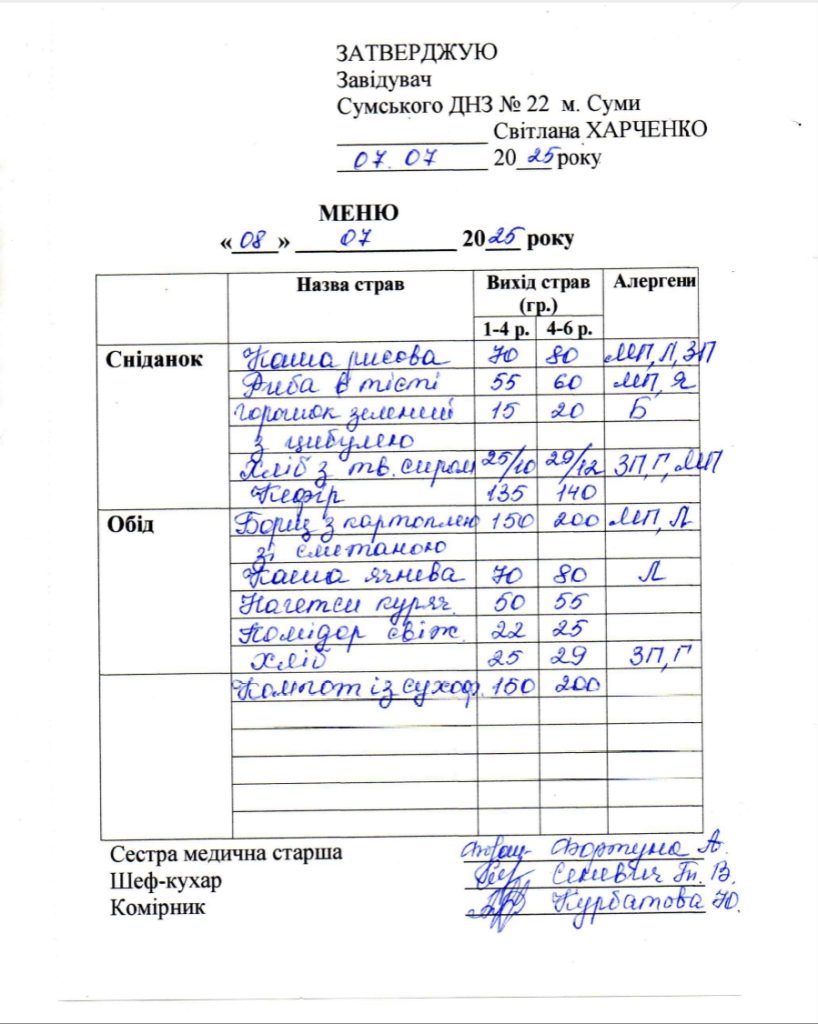 ЗАТВЕРДЖУЮ
Завідувач
Сумського ДНЗ № 22 м. Суми
Світлана ХАРЧЕНКО
07.07 2025 року
МЕНЮ
«08» 07 2025 року
Назва страв Вихід страв (гр.) Алергени
1-4 р. 4-6 р.
Сніданок Каша рисова 70 80 МП, Л, ЗП
Риба в тісті 55 60 МП, Я
Горошок зелений 15 20 Б
з цибулею
Хліб з тв. сиром 25/10 29/12 ЗП, Г, МП
Кефір 135 140
Обід Борщ з картоплею 150 200 МП, Л
зі сметаною
Каша ячнева 70 80 Л
Нагетси куряч. 50 55
Помідор свіж. 22 25
Хліб 25 29 ЗП, Г
Компот із сухоф. 150 200
Сестра медична старша Фортуна А.
Шеф-кухар В.
Комірник Курбатова Ю.